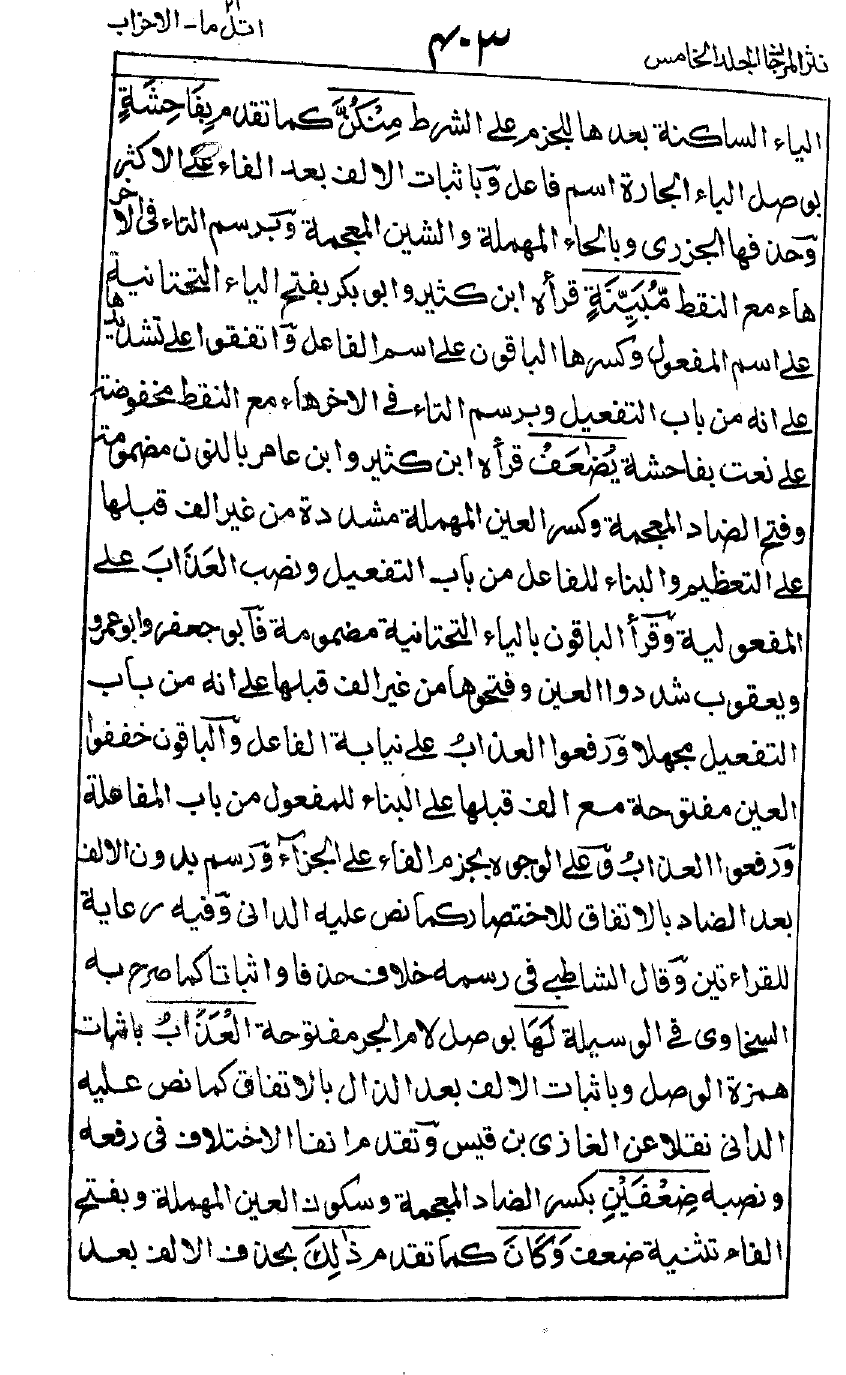 نثر المرجان الجلد الخامس
٤٠٣
٢١
اتل ما - الاحزاب
الياء الساكنة بعدها للجزم على الشرط مِنْكُنَّ كما تقدم بِفَاحِشَةٍ
بوصل الباء الجارة اسم فاعل وّباثبات الالف بعد الفاء على الاكثر
وّحذفها الجزرى وبالحاء المهملة والشين المعجمة وّبرسم التاء فى الاخر
هاء مع النقط مُّبَيِّنَةٍ قرأه ابن كثير وابو بكر بفتح الياء التحتانية
على اسم المفعول وكسرها الباقون على اسم الفاعل وّاتفقوا على تشديدها
على انه من باب التفعيل وبرسم التاء فى الاخر هاء مع النقط مخفوضة
على نعت بفاحشة يُضٰعَفْ قرأه ابن كثير وابن عامر بالنون مضمومة
وفتح الضاد المعجمة وكسر العين المهملة مشددة من غير الف قبلها
على التعظيم والبناء للفاعل من باب التفعيل ونصب العَذَابَ على
المفعولية وّقرأ الباقون بالياء التحتانية مضمومة فآبو جعفر وابو عمرو
ويعقوب شددوا العين وفتحوها من غير الف قبلها على انه من باب
التفعيل مجهلا وّرفعوا العذابُ على نيابة الفاعل وّالباقون خففوا
العين مفتوحة مع الف قبلها على البناء للمفعول من باب المفاعلة
وّرفعوا العذابُ وّعلى الوجوه بجزم الفاء على الجزآء وّرسم بدون الالف
بعد الضاد بالاتفاق للاختصار كما نص عليه الدانى وّفيه رعاية
للقراءتين وّقال الشاطبى فى رسمه خلاف حذفا واثباتا كما صرح به
السخاوى فى الوسيلة لَهَا بوصل لام الجر مفتوحة الْعَذَابُ باثبات
همزة الوصل وباثبات الالف بعد الذال بالاتفاق كما نص عليه
الدانى نقلا عن الغازى بن قيس وّتقدم انفا الاختلاف فى رفعه
ونصبه ضِعْفَيْنِ بكسر الضاد المعجمة وسكون العين المهملة وبفتح
الفاء تثنية ضعف وَكَانَ كما تقدم ذٰلِكَ بحذف الالف بعد